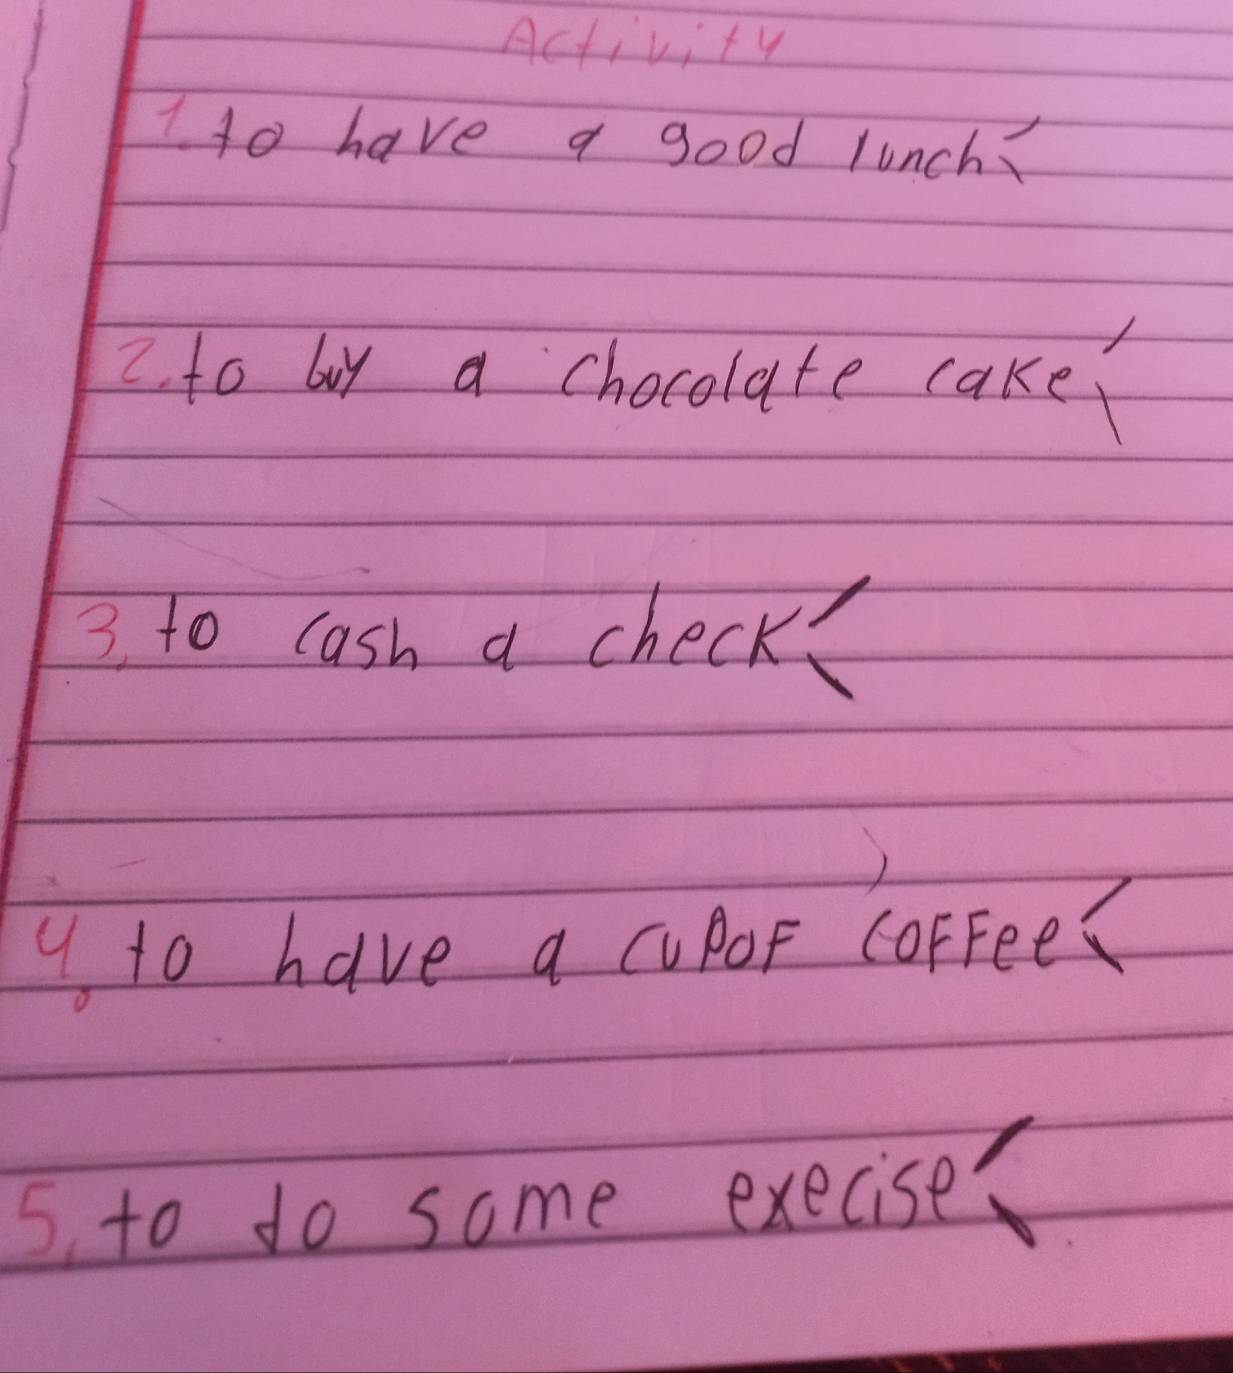 Activity
1. to have a good lunch
2. to buy a chocolate cake
3. to cash a check
4. to have a cup of coffee
5. to do some execise